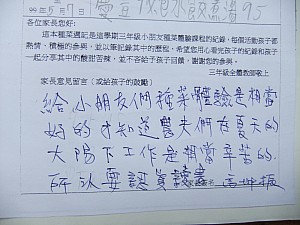 各位家長您好:
這本種菜週記是這學期三年級小朋友種菜體驗課程的紀錄,每個活動孩子都
熱情、積極的參與,並以筆記錄其中的歷程,希望您用心看完孩子的紀錄和孩子
一起分享其中的酸甜苦辣,並不吝給予孩子回饋,謝謝您的參與。
三年級全體教師敬上
家長意見留言(或給孩子的鼓勵)
給小朋友們種菜體驗是相當
好的才知道農夫們在夏天的
大陽下工作是相當辛苦的.
所以要認真讀書